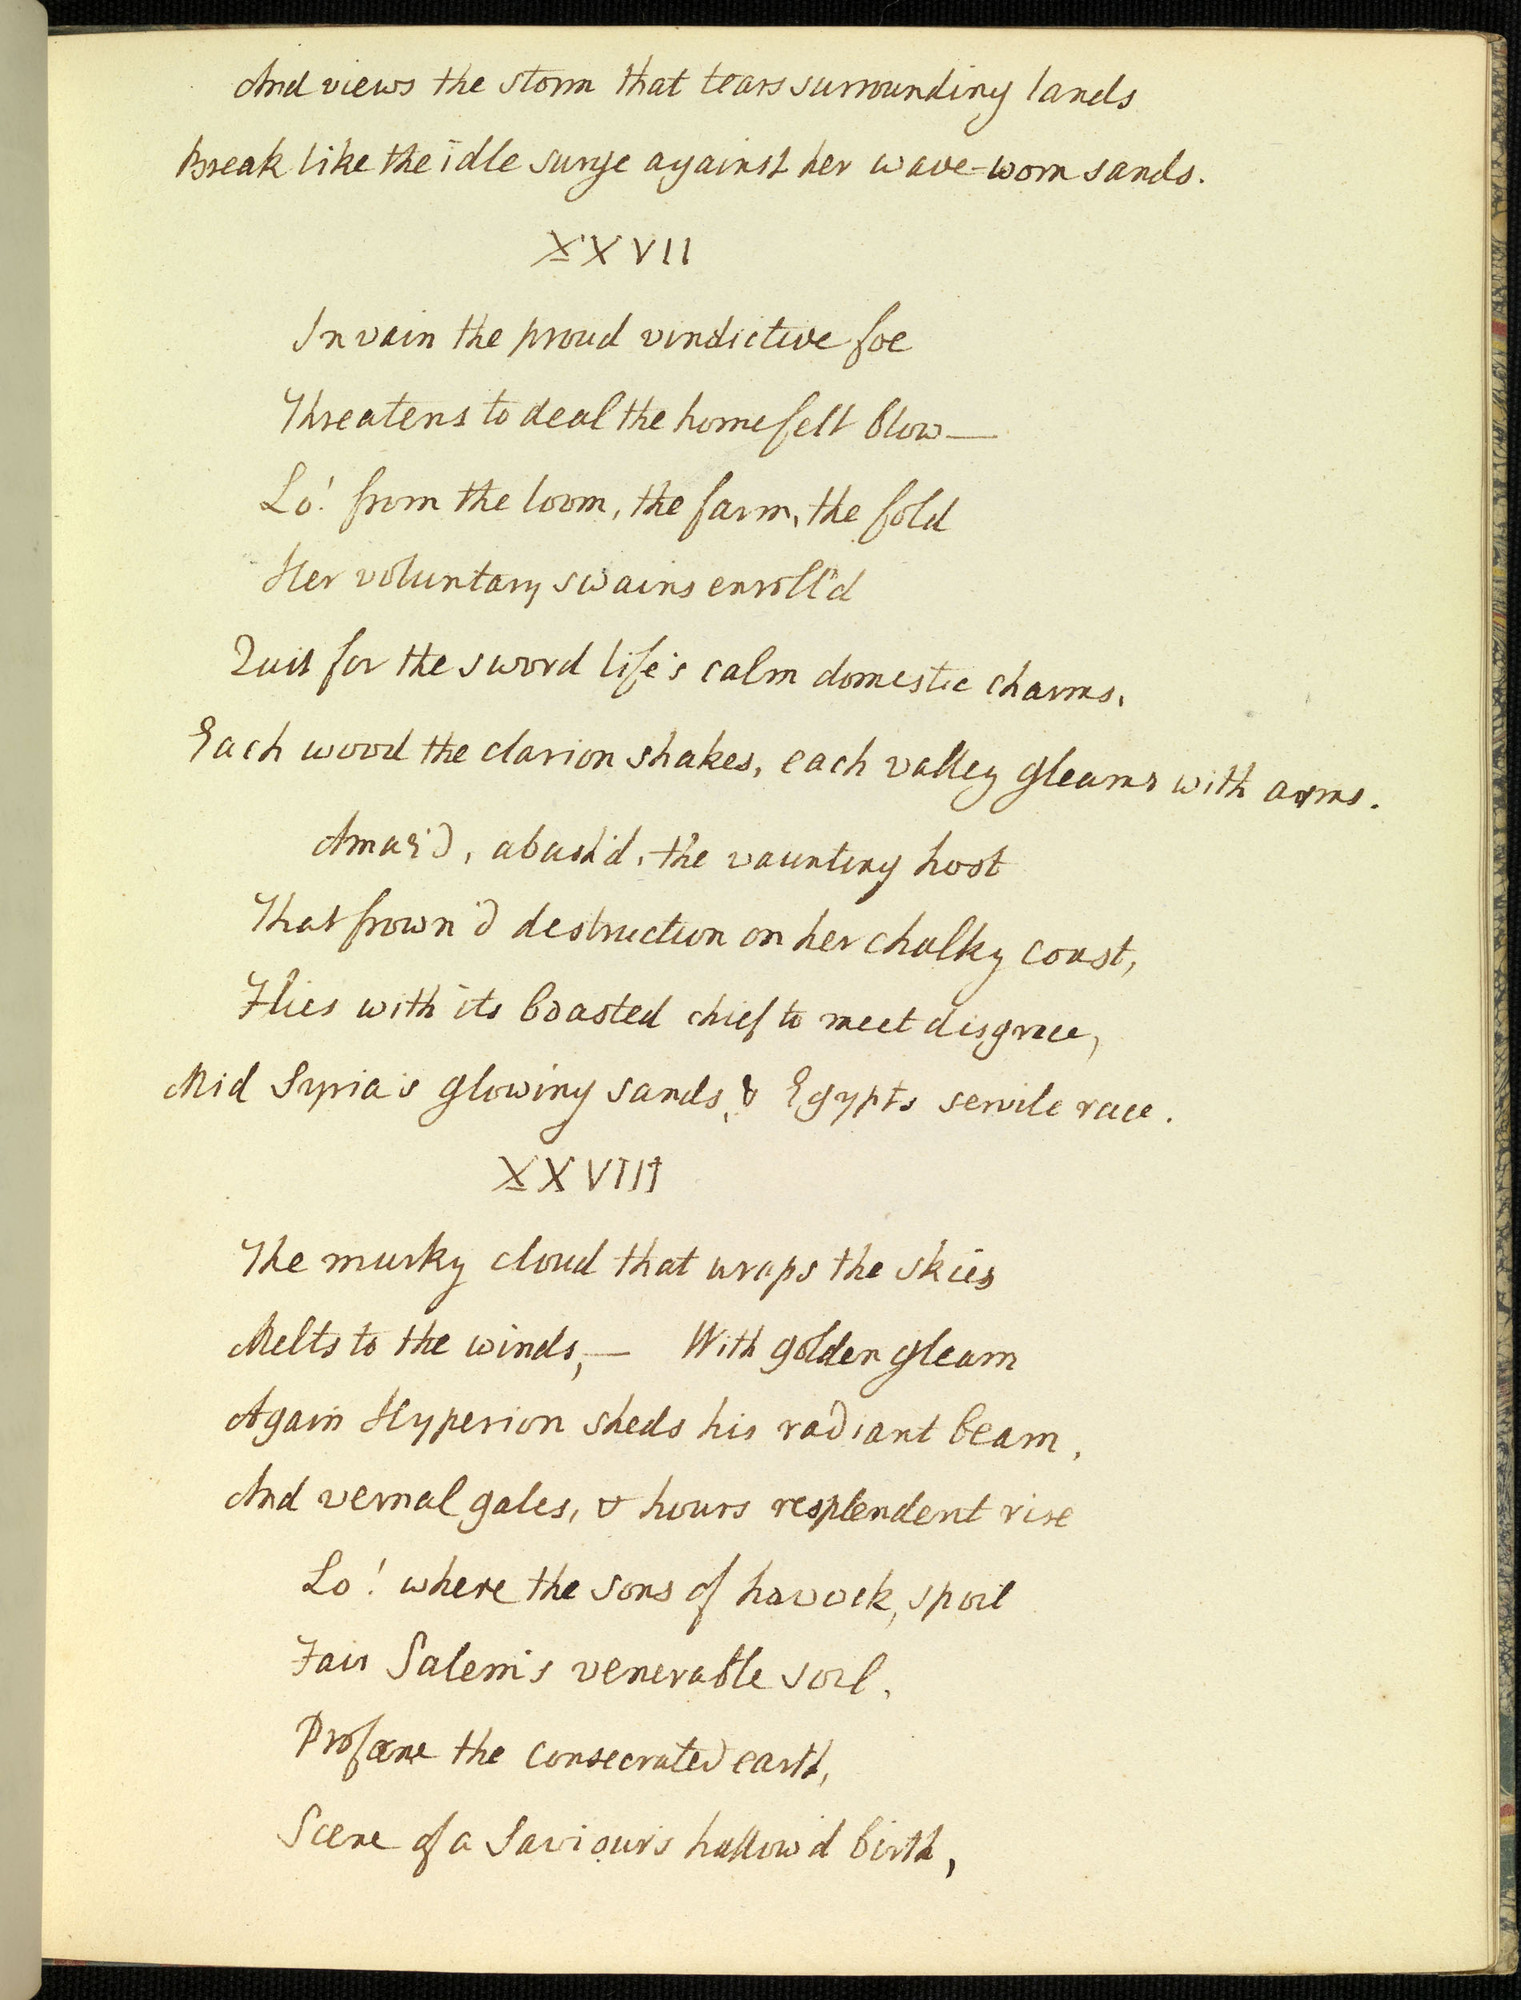 And views the storm that tears surrounding lands
Break like the idle surge against her wave-worn sands.
XXVII
In vain the proud vindictive foe
Threatens to deal the homefelt blow—
Lo! from the loom, the farm, the fold
Her voluntary swains enroll'd
Quit for the sword life's calm domestic charms,
Each wood the clarion shakes, each valley gleams with arms.
Amaz'd, abash'd, the vaunting host
That frown'd destruction on her chalky coast,
Flies with its boasted chief to meet disgrace,
Mid Syria's glowing sands, & Egypts servile race.
XXVIII
The murky cloud that wraps the skies
Melts to the winds,— With golden gleam
Again Hyperion sheds his radiant beam,
And vernal gales, & hours resplendent rise
Lo! where the sons of havock, spoil
Fair Salem's venerable soil,
Profane the consecrated earth,
Scene of a Saviour's hallow'd birth,